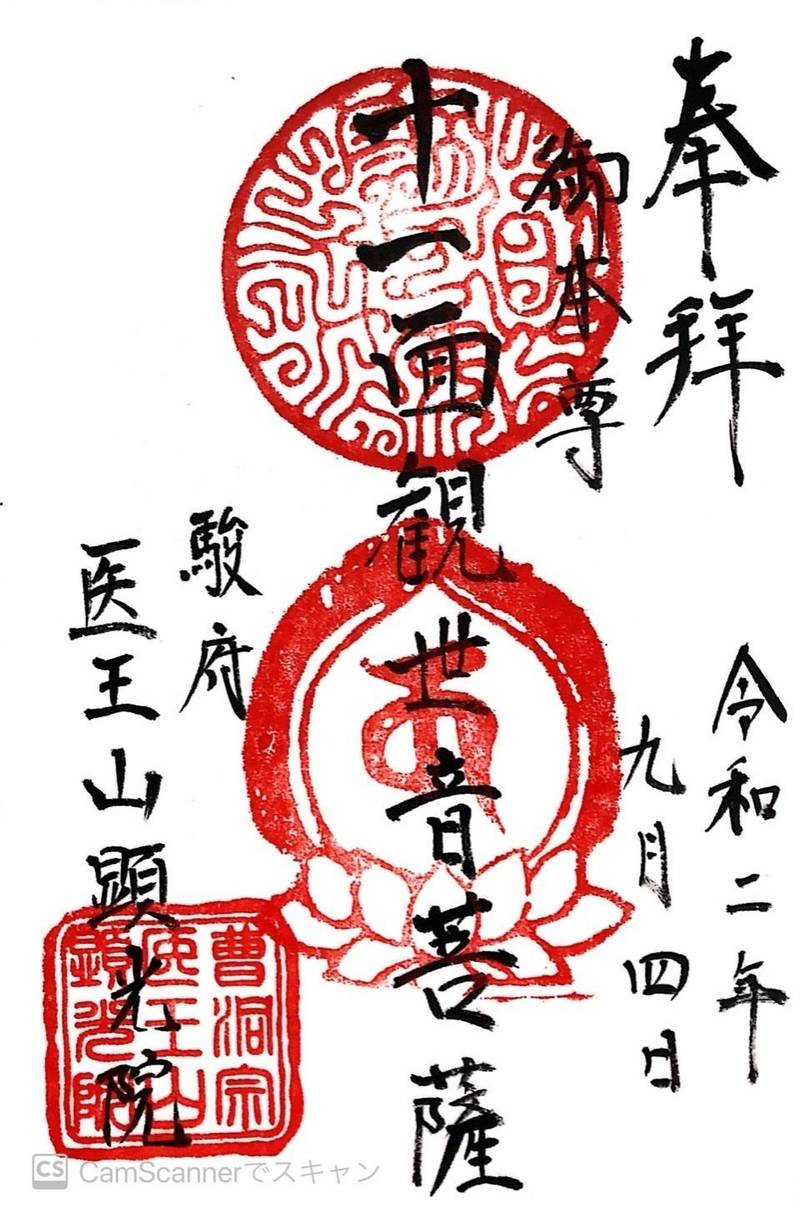 奉拝
令和二年
九月四日
御本尊
十一面観世音菩薩
駿府
医王山顕光院
曹洞宗
医王山
顕光院
CS CamScannerでスキャン